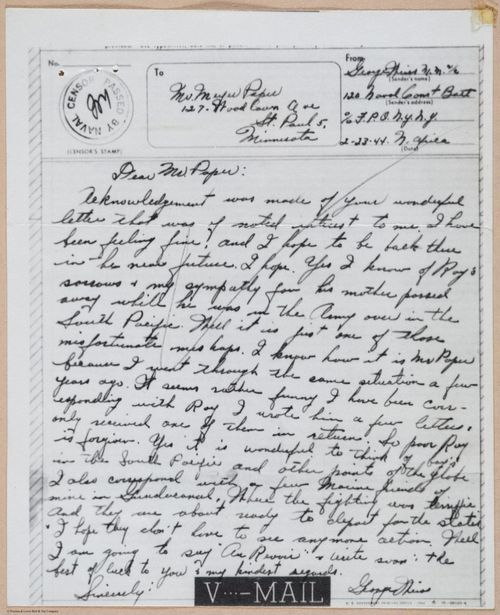 No.
PASSED BY NAVAL CENSOR
(CENSOR'S STAMP)
To
Mr. Meyer Paper
127- Woodlawn Ave
St. Paul 5,
Minnesota
From
George
(Sender's name)
120 Naval Const Batt
(Sender's address)
% F.P.O. N.Y. N.Y.
2-23-44. N. Africa
(Date)
Dear Mr. Paper:
Acknowledgement was made of your wonderful
letter that was of noted interest to me. I have
been feeling fine, and I hope to be back there
in the near future. I hope. Yes I know of Roy's
sorrows & my sympathy for his mother passed
away while he was in the Army over in the
South Pacific. Well it is just one of those
misfortunate mishaps. I know how it is Mr Paper
because I went through the same situation a few
years ago. It seems rather funny I have been corr-
esponding with Roy I wrote him a few letters,
only received one of them in return. So poor Roy
is forgiven. Yes it is wonderful to think of boys
in the South Pacific and other points of the globe
I also correspond with a few Marine friends of
mine in Guadalcanal. Where the fighting was terrific
and they are about ready to depart for the states
I hope they don't have to see anymore action. Well
I am going to say Au Revoir & write soon: the
best of luck to you & my kindest regards.
Sincerely:
George
V···-MAIL